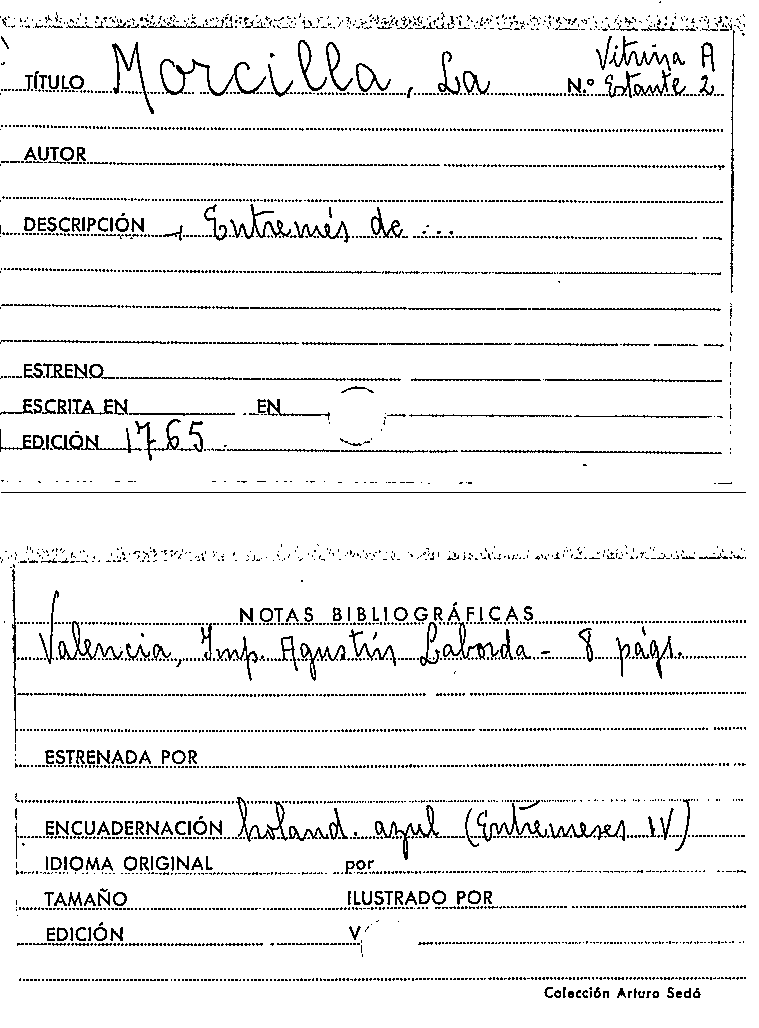 Vitrina A
TÍTULO Morcilla, La N.º Estante 2
AUTOR
DESCRIPCIÓN Entremés de ...
ESTRENO
ESCRITA EN EN
EDICIÓN 1765
NOTAS BIBLIOGRÁFICAS
Valencia, Imp. Agustín Laborda - 8 págs.
ESTRENADA POR
ENCUADERNACIÓN holand. azul (Entremeses IV)
IDIOMA ORIGINAL por
TAMAÑO ILUSTRADO POR
EDICIÓN V
Colección Arturo Sedó